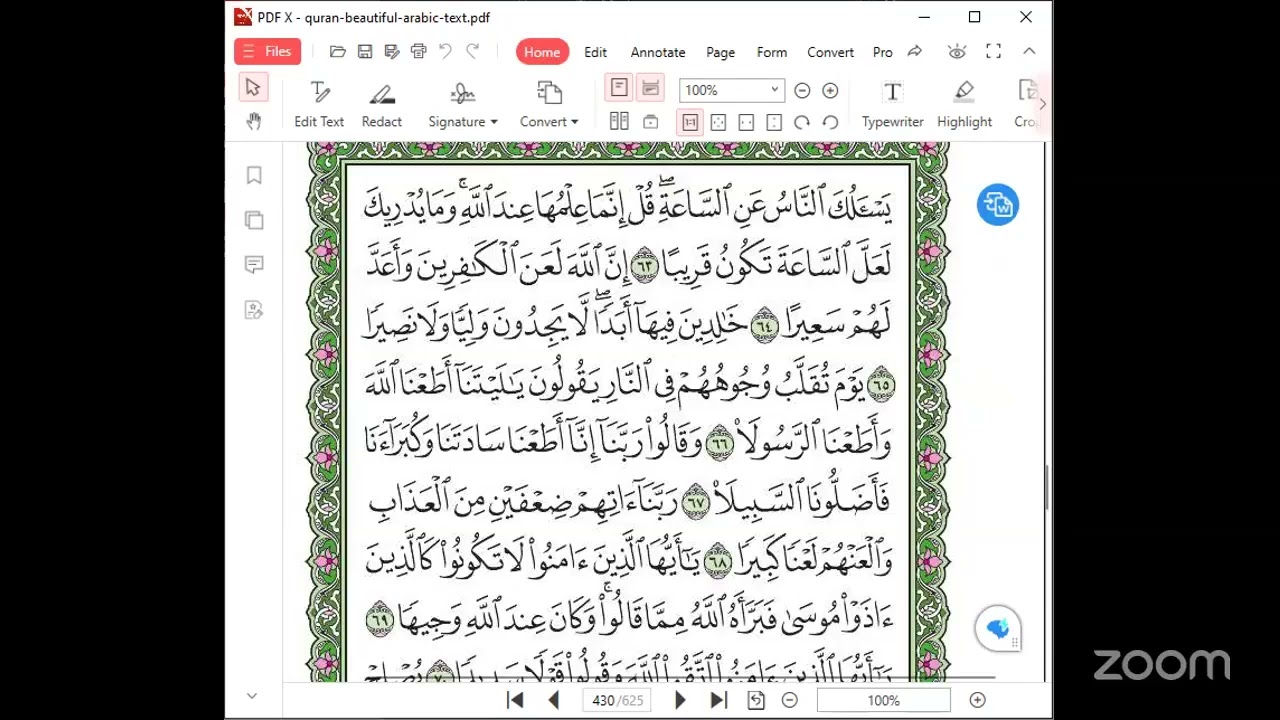 PDF X - quran-beautiful-arabic-text.pdf
Files Home Edit Annotate Page Form Convert Pro
100%
Edit Text Redact Signature Convert Typewriter Highlight Cro
يَسْـَٔلُكَ ٱلنَّاسُ عَنِ ٱلسَّاعَةِۖ قُلْ إِنَّمَا عِلْمُهَا عِندَ ٱللَّهِۚ وَمَا يُدْرِيكَ
لَعَلَّ ٱلسَّاعَةَ تَكُونُ قَرِيبًا ٦٣ إِنَّ ٱللَّهَ لَعَنَ ٱلْكَٰفِرِينَ وَأَعَدَّ
لَهُمْ سَعِيرًا ٦٤ خَٰلِدِينَ فِيهَآ أَبَدًاۖ لَّا يَجِدُونَ وَلِيًّا وَلَا نَصِيرًا
٦٥ يَوْمَ تُقَلَّبُ وُجُوهُهُمْ فِى ٱلنَّارِ يَقُولُونَ يَٰلَيْتَنَآ أَطَعْنَا ٱللَّهَ
وَأَطَعْنَا ٱلرَّسُولَا۠ ٦٦ وَقَالُوا۟ رَبَّنَآ إِنَّآ أَطَعْنَا سَادَتَنَا وَكُبَرَآءَنَا
فَأَضَلُّونَا ٱلسَّبِيلَا۠ ٦٧ رَبَّنَآ ءَاتِهِمْ ضِعْفَيْنِ مِنَ ٱلْعَذَابِ
وَٱلْعَنْهُمْ لَعْنًا كَبِيرًا ٦٨ يَٰٓأَيُّهَا ٱلَّذِينَ ءَامَنُوا۟ لَا تَكُونُوا۟ كَٱلَّذِينَ
ءَاذَوْا۟ مُوسَىٰ فَبَرَّأَهُ ٱللَّهُ مِمَّا قَالُوا۟ۚ وَكَانَ عِندَ ٱللَّهِ وَجِيهًا ٦٩
يَٰٓأَيُّهَا ٱلَّذِينَ ءَامَنُوا۟ ٱتَّقُوا۟ ٱللَّهَ وَقُولُوا۟ قَوْلًا سَدِيدًا ٧٠ يُصْلِحْ
430 /625 100%
zoom